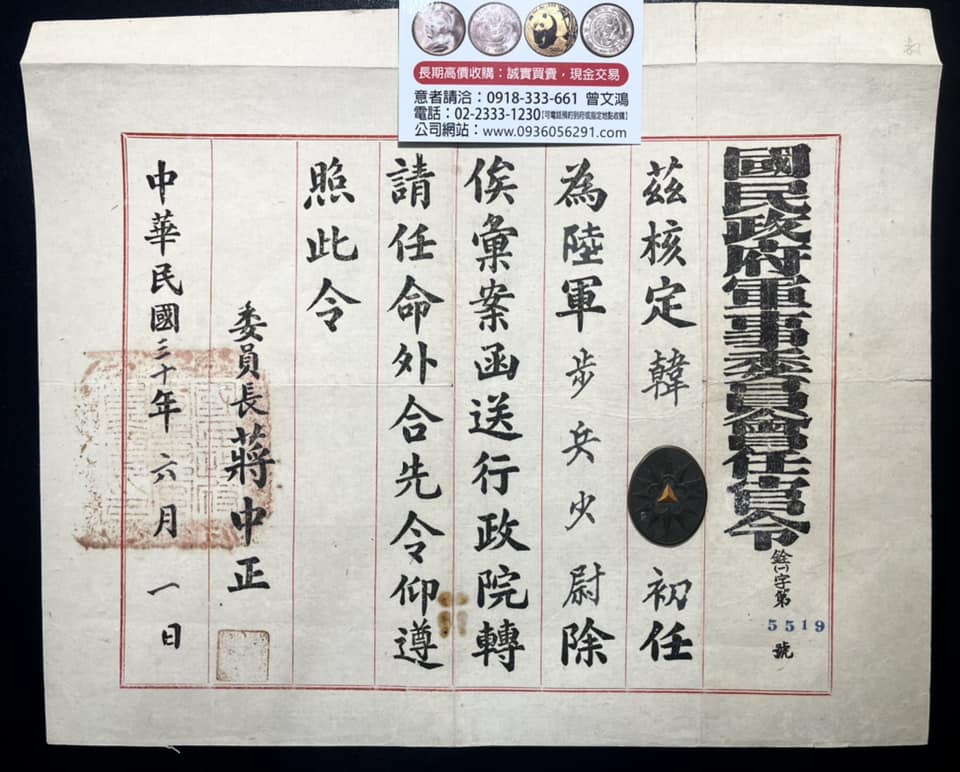 長期高價收購：誠實買賣，現金交易
意者請洽：0918-333-661 曾文鴻
電話：02-2333-1230【可電話預約到府或指定地點收購】
公司網站：www.0936056291.com
國民政府軍事委員會任官令
銓字第
5519
號
茲核定韓 初任
為陸軍步兵少尉除
俟彙案函送行政院轉
請任命外合先令仰遵
照此令
委員長蔣中正
中華民國三十年六月一日